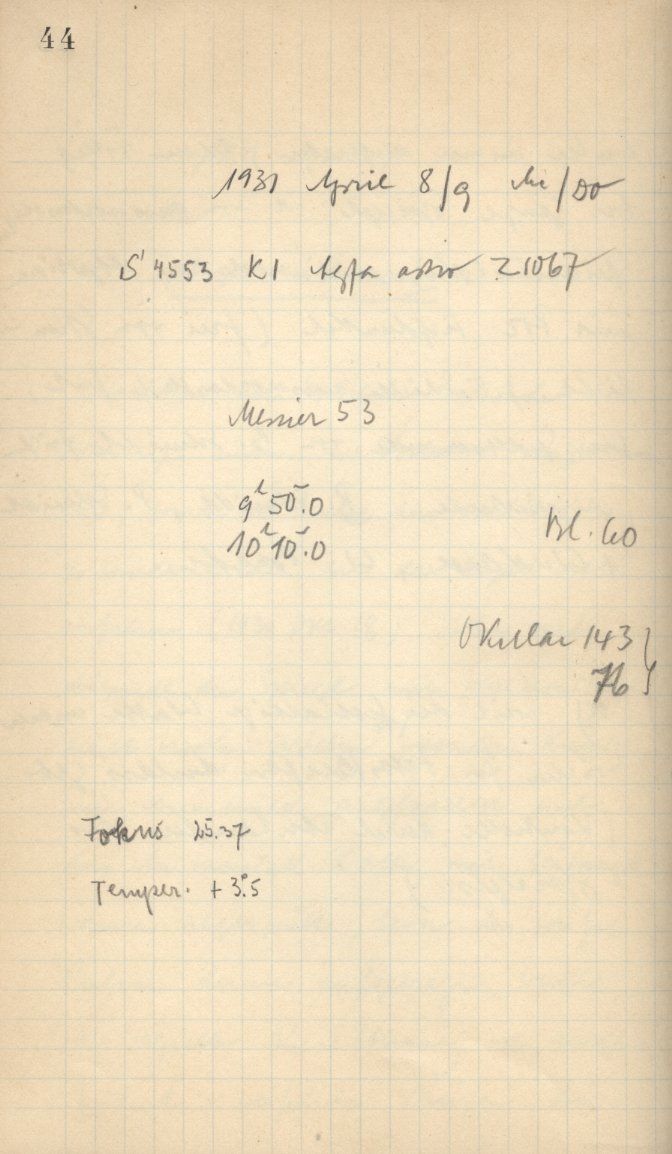 44
1931 April 8/9 Mi/Do
S 4553 Kl Agfa astro Z1067
Messier 53
9h 50m.0
10h 10m.0
Bl. 60
Okular 143 }
76 }
Fokus 25.37
Temper. + 3°.5